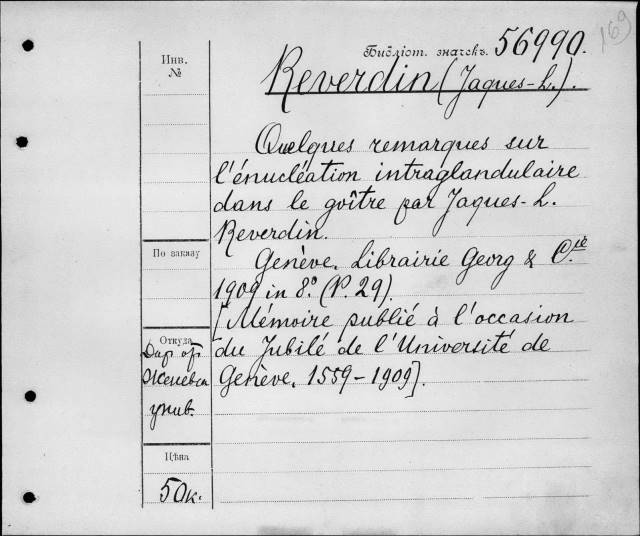 169
Библіот. значекъ. 56990.
Инв.
№
Reverdin (Jaques-L.).
Quelques remarques sur
l'énucléation intraglandulaire
dans le goître par Jaques-L.
Reverdin.
По заказу
Genève. Librairie Georg & Cie
1909 in 8º (P. 29).
[Mémoire publié à l'occasion
du Jubilé de l'Université de
Genève. 1559-1909].
Откуда
Дар от
Женевск
унив.
Цѣна
50к.